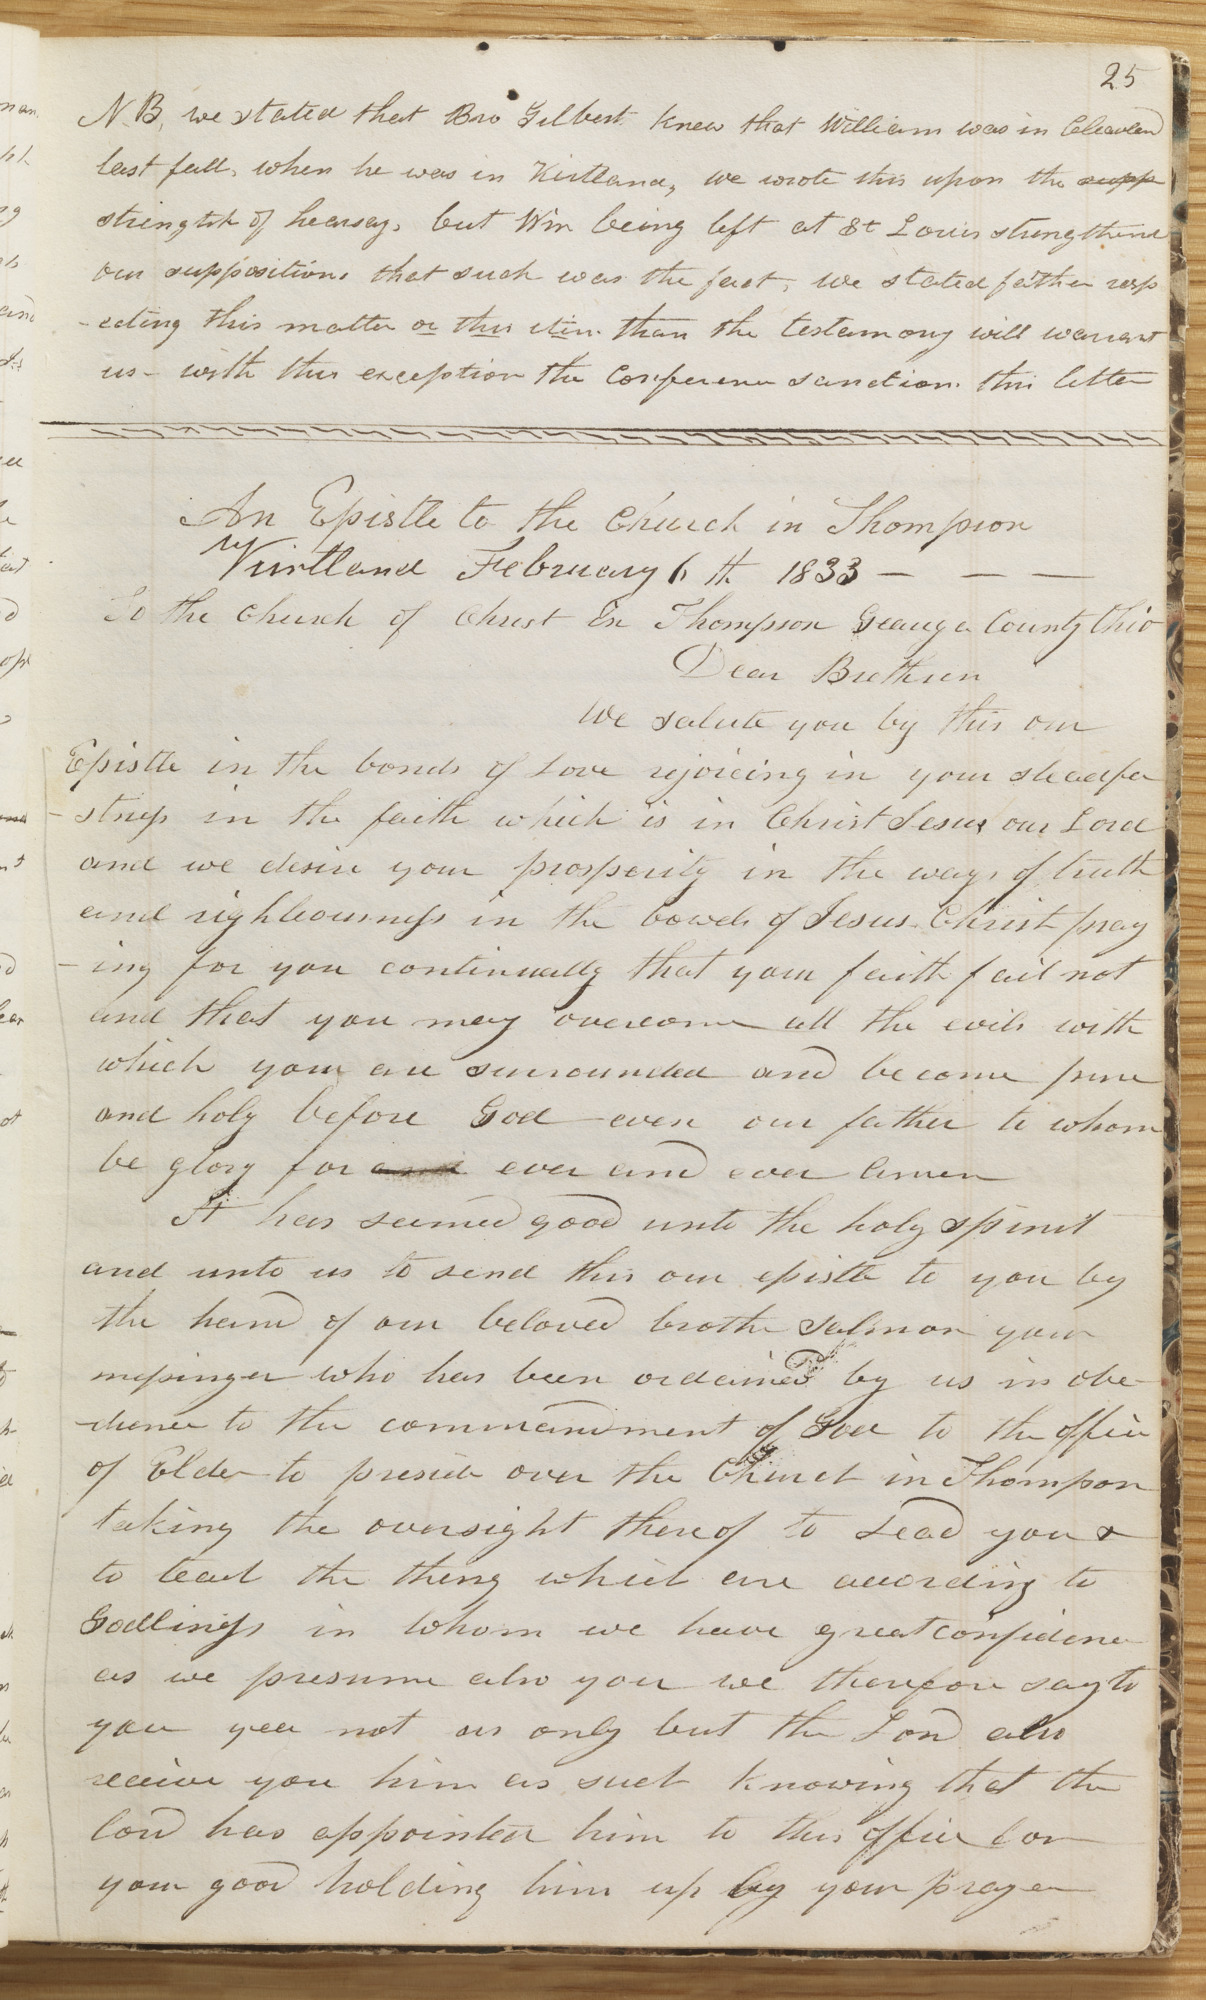 25
N.B, we stated that Bro Gilbert knew that William was in Cleavland
last fall, when he was in Kirtland, we wrote this upon the supp
strength of hearsay, but Wm being left at St Louis strengthend
our supposition, that such was the fact, we stated father resp
-ecting this matter or this item than the testamony will warrant
us - with this exception the Conference sanction this letter
An Epistle to the Church in Thompson
Kirtland February 6th 1833 — — —
To the Church of Christ in Thompson Geauga County Ohio
Dear Brethren
We salute you by this our
Epistle in the bonds of Love rejoicing in your steadfa
-stness in the faith which is in Christ Jesus our Lord
and we desire your prosperity in the ways of truth
and righteousness in the bowels of Jesus Christ pray
-ing for you continually that your faith fail not
and that you may overcome all the evils with
which your are surrounded and become pure
and holy before God even our father to whom
be glory for and ever and ever Amen
It has seemed good unto the holy spirit
and unto us to send this our epistle to you by
the hand of our beloved brother Salmon your
messinger who has been ordained by us in obe
-dience to the commandment of God to the office
of Elder to preside over the Church in Thompson
taking the oversight thereof to Lead you &
to teach the thing which are according to
Godliness in whom we have great confidence
as we presume also you we therefore say to
you yea not us only but the Lord also
receive you him as such knowing that the
lord has appointed him to this office for
your good holding him up by your prayer